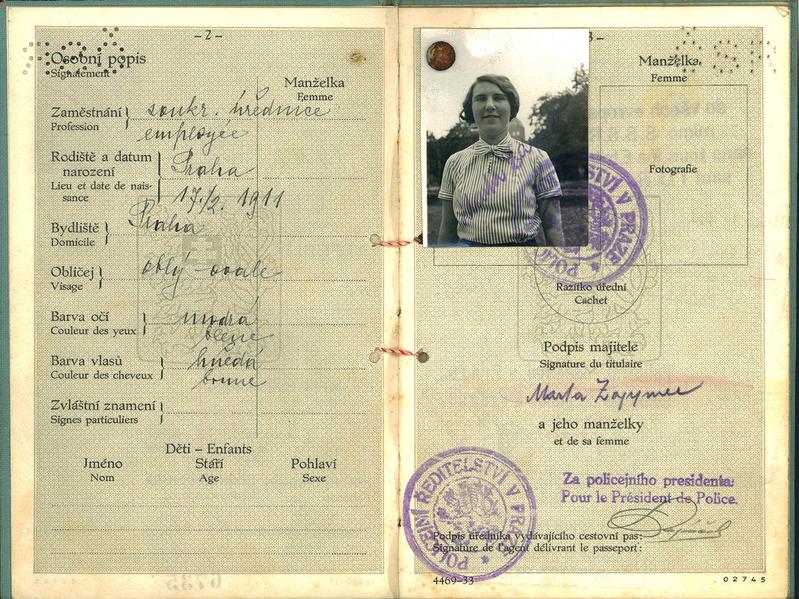 - 2 -
Osobní popis
Signalement
Manželka
Femme
Zaměstnání
Profession
soukr. úřednice
employée
Rodiště a datum
narození
Lieu et date de nais-
sance
Praha
17./2. 1911
Bydliště
Domicile
Praha
Obličej
Visage
oblý - ovale
Barva očí
Couleur des yeux
modrá
bleue
Barva vlasů
Couleur des cheveux
hnědá
brune
Zvláštní znamení
Signes particuliers
Děti – Enfants
Jméno
Nom
Stáří
Age
Pohlaví
Sexe
3 -
Manželka
Femme
Fotografie
POLICEJNÍ ŘEDITELSTVÍ V PRAZE
Razítko úřední
Cachet
Podpis majitele
Signature du titulaire
Marta
a jeho manželky
et de sa femme
Za policejního presidenta:
Pour le Président de Police.
POLICEJNÍ ŘEDITELSTVÍ V PRAZE
Podpis úředníka vydávajícího cestovní pas:
Signature de l'agent délivrant le passeport:
4469-33
02745